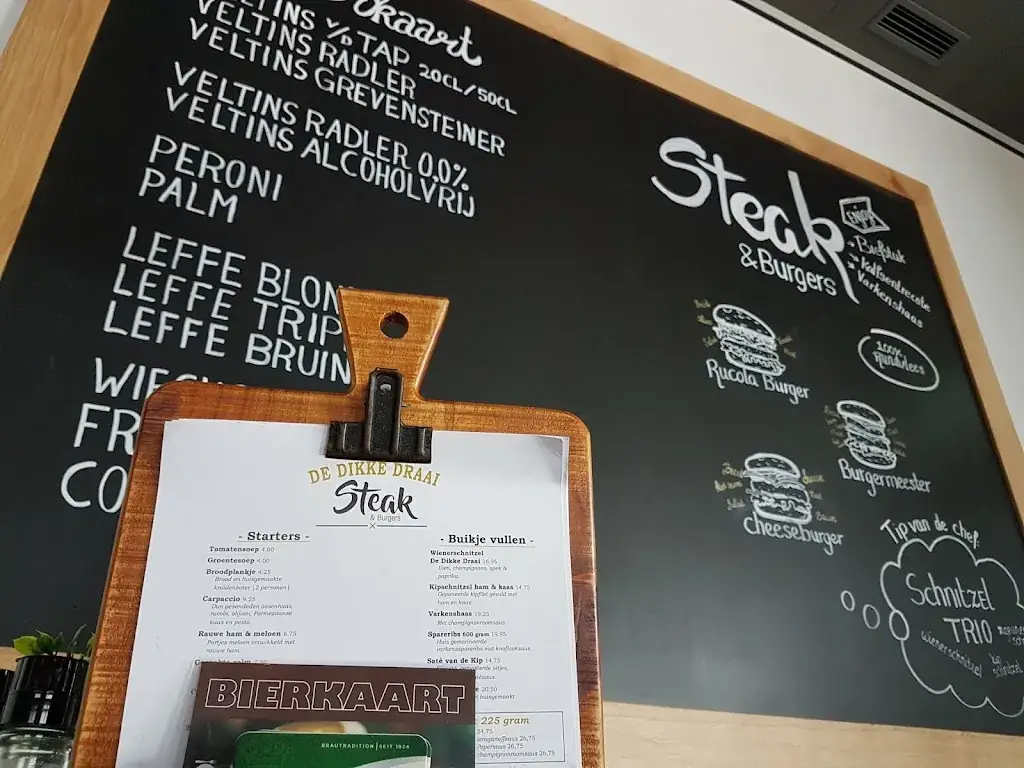 okaart
VELTINS V/D TAP 20CL/50CL
VELTINS RADLER
VELTINS GREVENSTEINER
VELTINS RADLER 0,0%
VELTINS ALCOHOLVRIJ
PERONI
PALM
LEFFE BLON
LEFFE TRIP
LEFFE BRUIN
WIECK
FR
CO
Steak
& Burgers
ENJOY
Biefstuk
Kalfsentrecote
Varkenshaas
100%
Rundvlees
Rucola Burger
Burgermeester
Cheeseburger
Tip van de chef:
Schnitzel
TRIO
wienerschnitzel
DE DIKKE DRAAI
Steak
& Burgers
- Starters -
Tomatensoep 4.00
Groentesoep 4.00
Broodplankje 4.25
Brood en huisgemaakte
kruidenboter ( 2 personen )
Carpaccio 9.25
Dun gesneden ossenhaas,
rucola, olijven, Parmezaanse
kaas en pesto.
Rauwe ham & meloen 6.75
Partjes meloen omwikkeld met
rauwe ham.
- Buikje vullen -
Wienerschnitzel
De Dikke Draai 16.95
Uien, champignons, spek &
paprika.
Kipschnitzel ham & kaas 14.75
Gepaneerde kipfilet gevuld met
ham en kaas
Varkenshaas 19.25
Met champignonroomsaus
Spareribs 600 gram 19.95
Huis gemarineerde
varkensspareribs met knoflooksaus.
Saté van de Kip 14,75
20.50
225 gram
24,75
26,75
Pepersaus 26,75
champignonroomsaus 26,75
BIERKAART
BRAUTRADITION | SEIT 1824